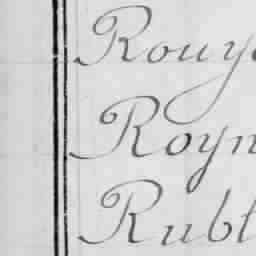 Rouy
Royn
Rubl